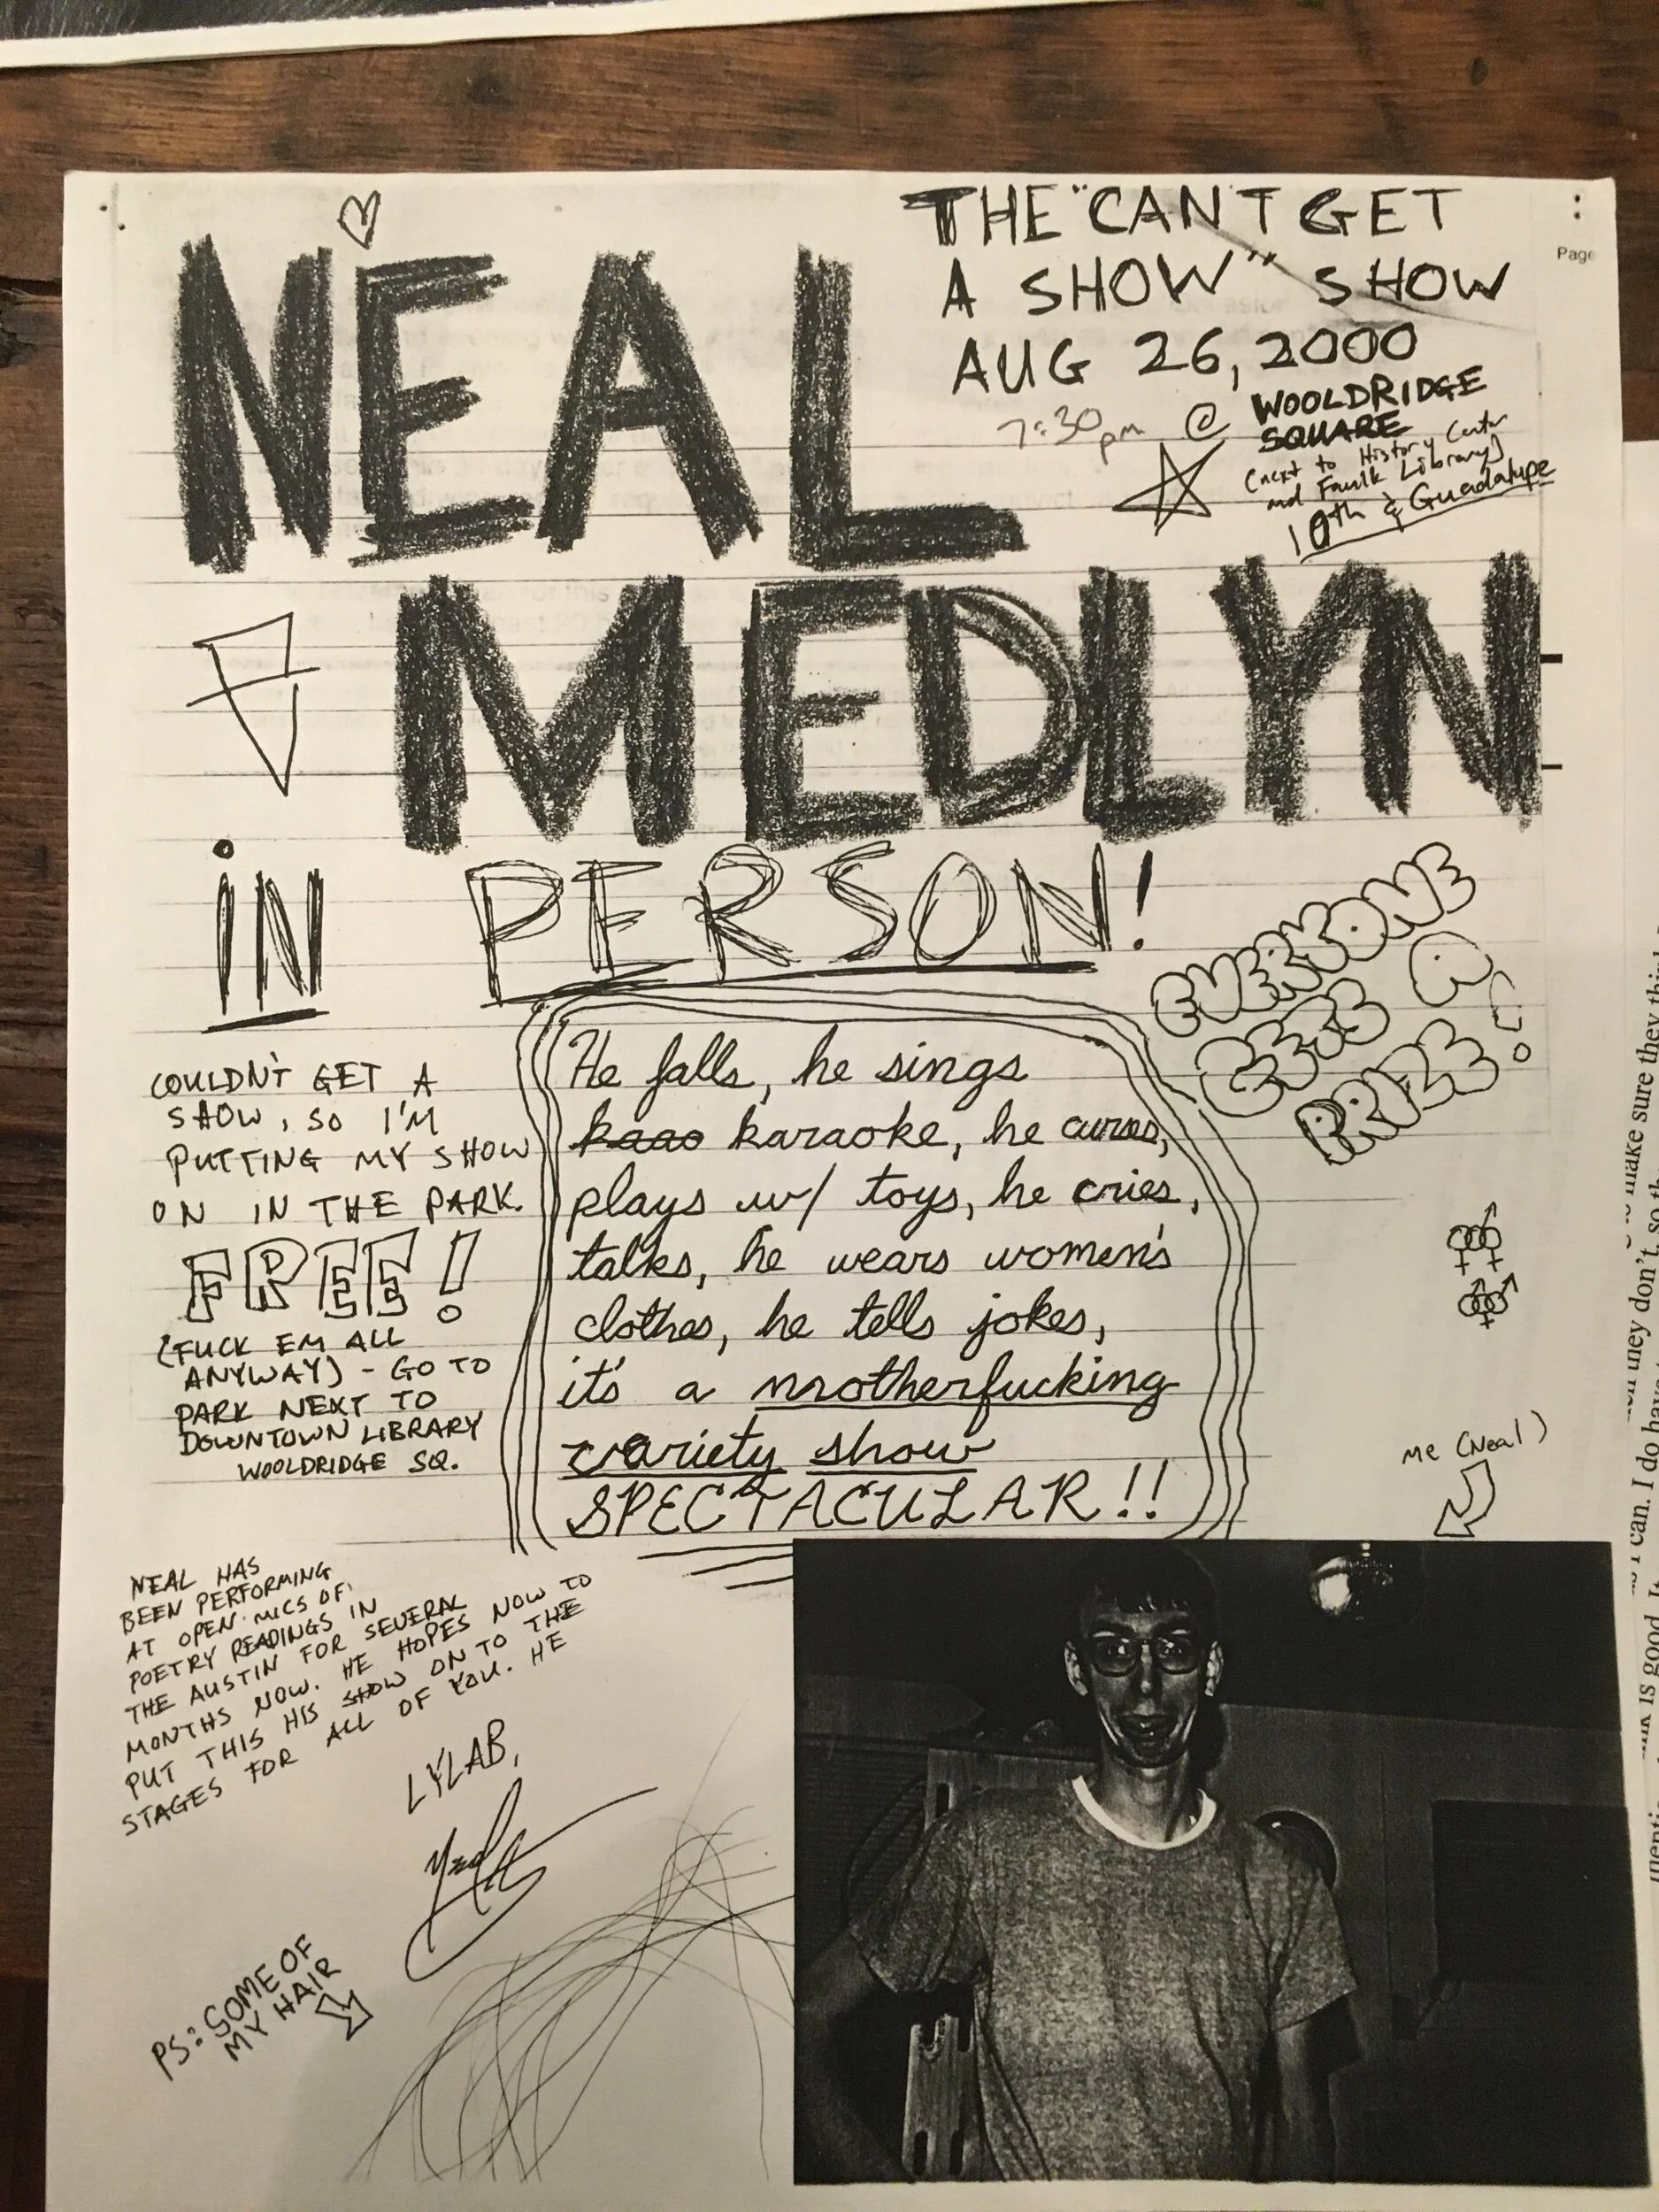 THE "CAN'T GET
A SHOW" SHOW
AUG 26, 2000
7:30 pm @ WOOLDRIDGE
SQUARE
(next to History Center
and Faulk Library)
10th & Guadalupe
Page
NEAL
MEDLYN
IN PERSON!
EVERYONE
GETS A
PRIZE!
COULDN'T GET A
SHOW, SO I'M
PUTTING MY SHOW
ON IN THE PARK.
FREE!
(FUCK EM ALL
ANYWAY) - GO TO
PARK NEXT TO
DOWNTOWN LIBRARY
WOOLDRIDGE SQ.
He falls, he sings
kaao karaoke, he curses,
plays w/ toys, he cries,
talks, he wears women's
clothes, he tells jokes,
it's a motherfucking
variety show
SPECTACULAR!!
me (Neal)
NEAL HAS
BEEN PERFORMING
AT OPEN MICS OF
POETRY READINGS IN
THE AUSTIN FOR SEVERAL
MONTHS NOW. HE HOPES NOW TO
PUT THIS HIS SHOW ON TO THE
STAGES FOR ALL OF YOU. HE
LYLAB,
Neal
PS: SOME OF
MY HAIR
make sure they
they don't, so
I can. I do have
is good.